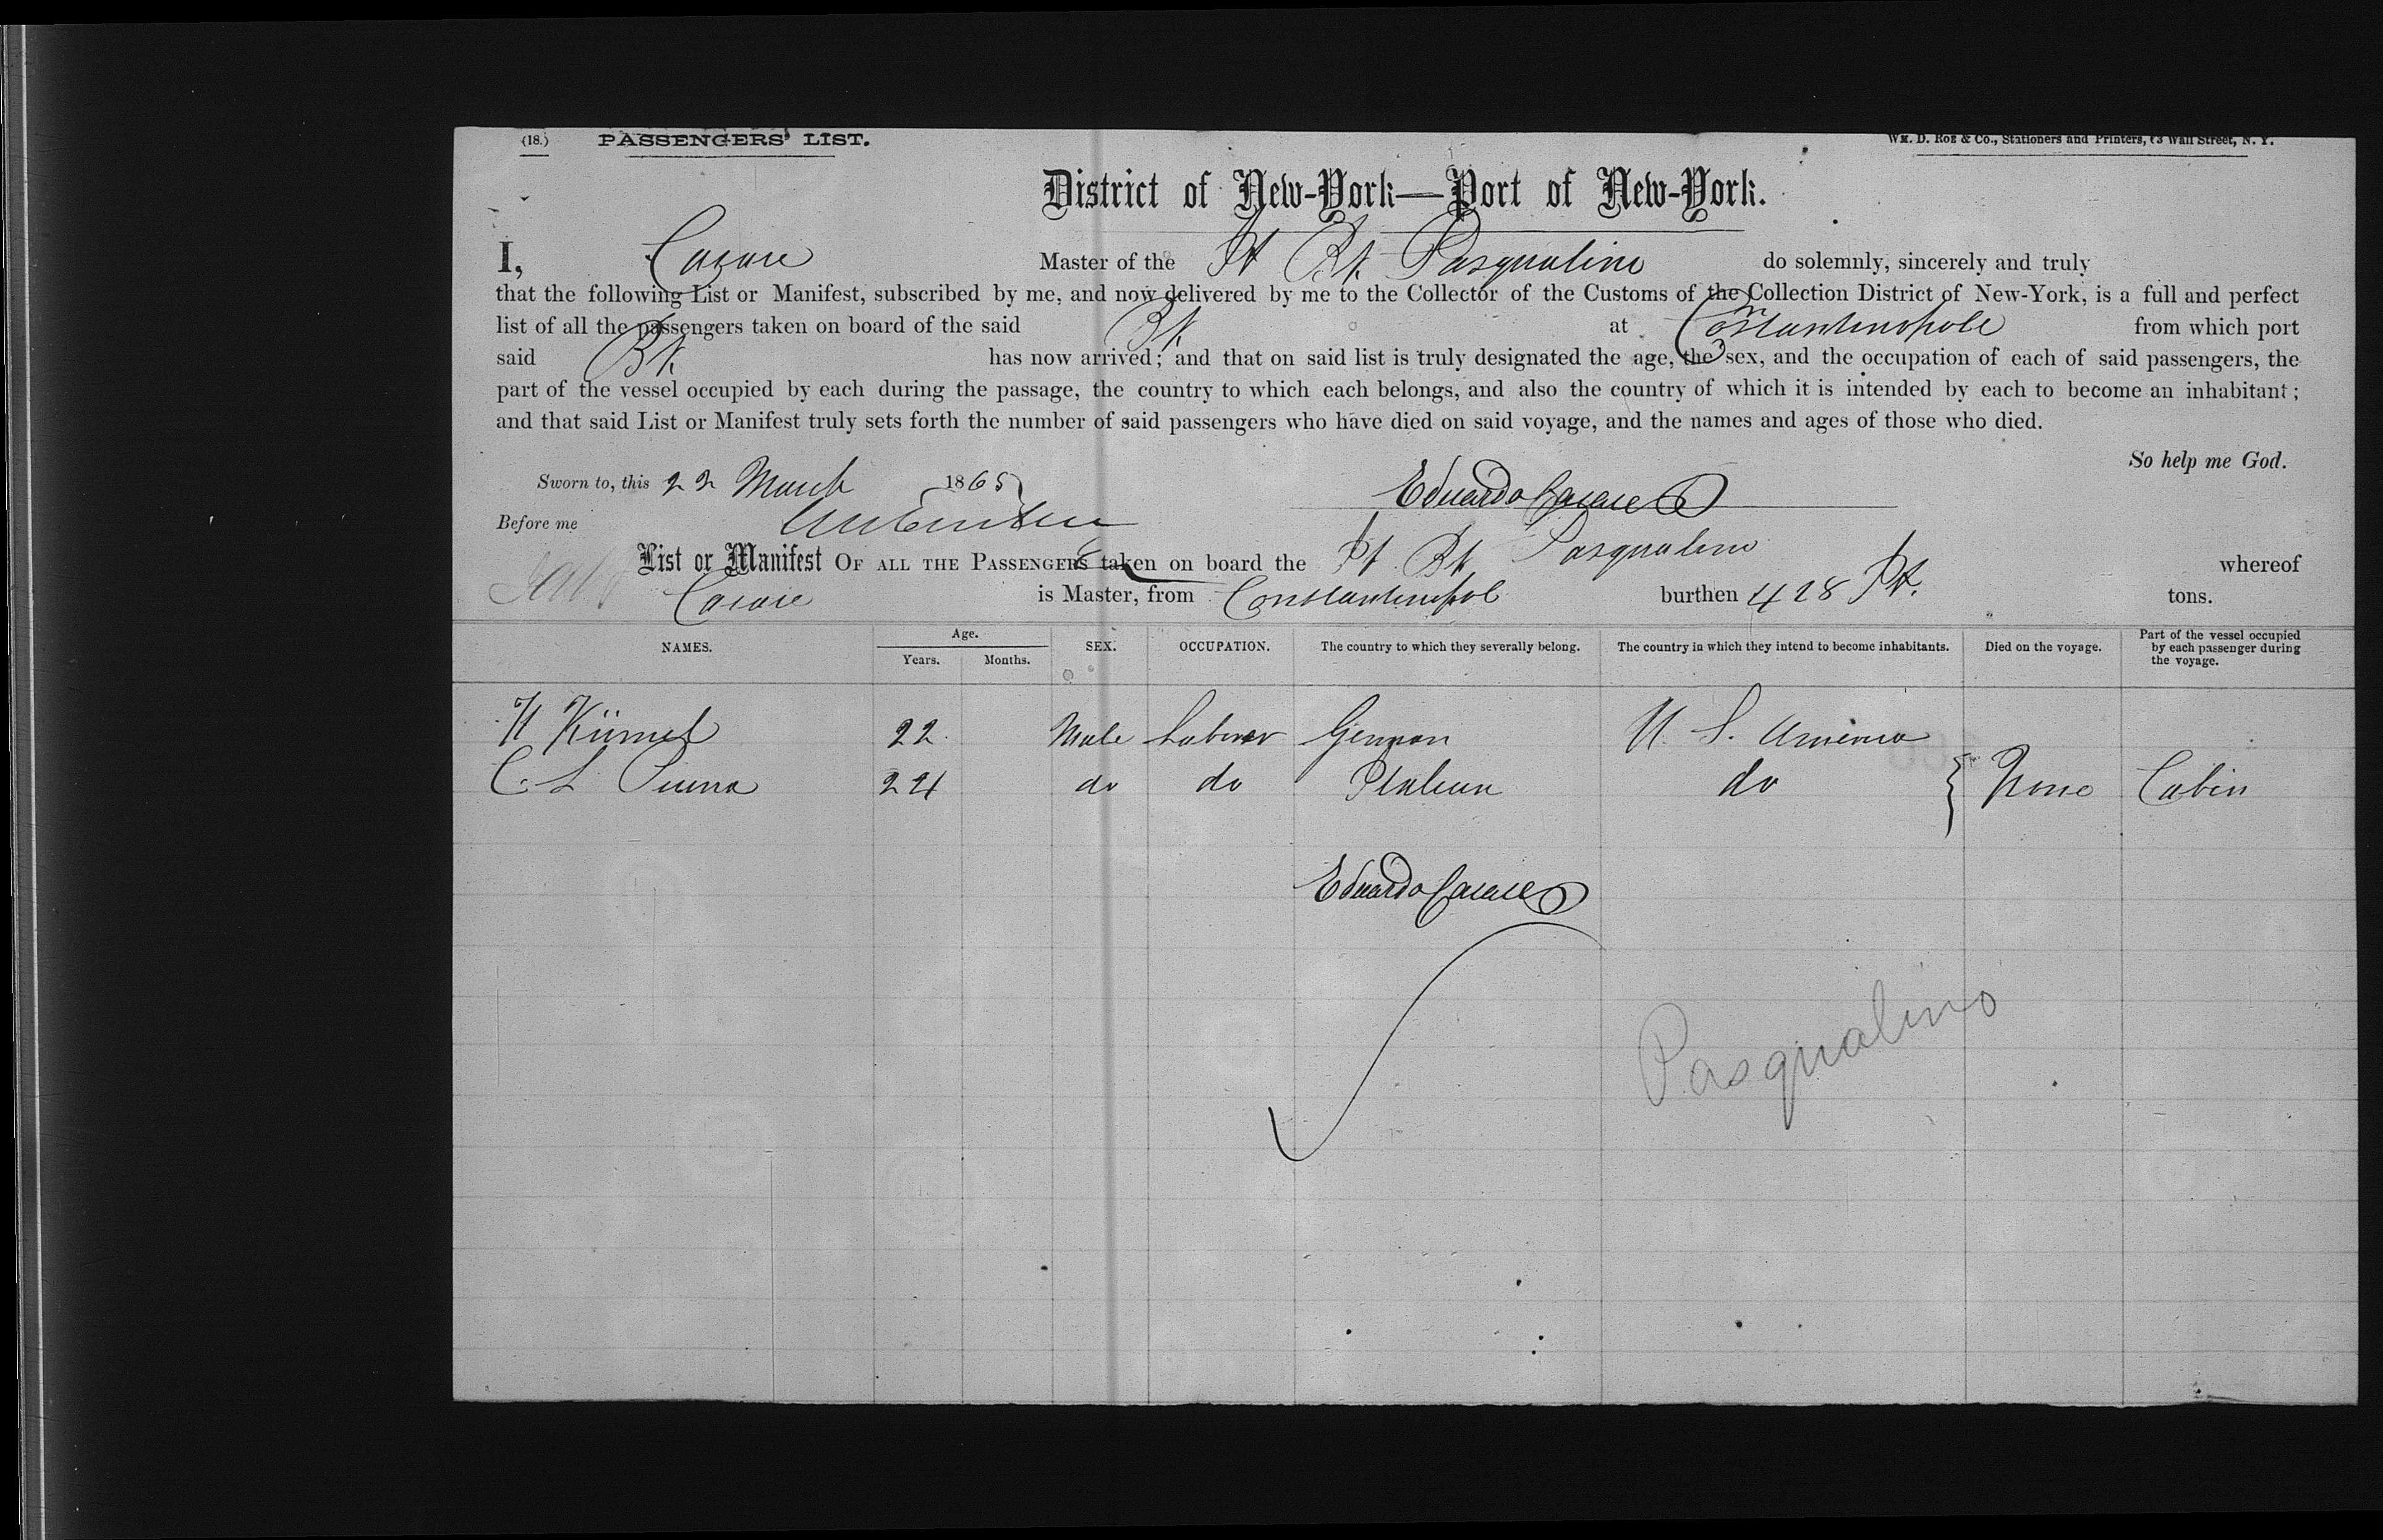 (18.) PASSENGERS' LIST. Wm. D. Roe & Co., Stationers and Printers, Wall Street, N. Y.
District of New-York—Port of New-York.
I, Cacace Master of the It Bk Pasqualino do solemnly, sincerely and truly
that the following List or Manifest, subscribed by me, and now delivered by me to the Collector of the Customs of the Collection District of New-York, is a full and perfect
list of all the passengers taken on board of the said Bk at Constantinople from which port
said Bk has now arrived; and that on said list is truly designated the age, the sex, and the occupation of each of said passengers, the
part of the vessel occupied by each during the passage, the country to which each belongs, and also the country of which it is intended by each to become an inhabitant;
and that said List or Manifest truly sets forth the number of said passengers who have died on said voyage, and the names and ages of those who died.
So help me God.
Sworn to, this 22 March 1865 Eduardo Cacace
Before me
List or Manifest OF ALL THE PASSENGERS taken on board the It Bk Pasqualino whereof
Cacace is Master, from Constantinopol burthen 428 tons.
NAMES. Age. Years. Months. SEX. OCCUPATION. The country to which they severally belong. The country in which they intend to become inhabitants. Died on the voyage. Part of the vessel occupied by each passenger during the voyage.
H Kümel 22 Male Laborer German U. S. America
C. L 24 do do Italian do None Cabin
Eduardo Cacace
Pasqualino